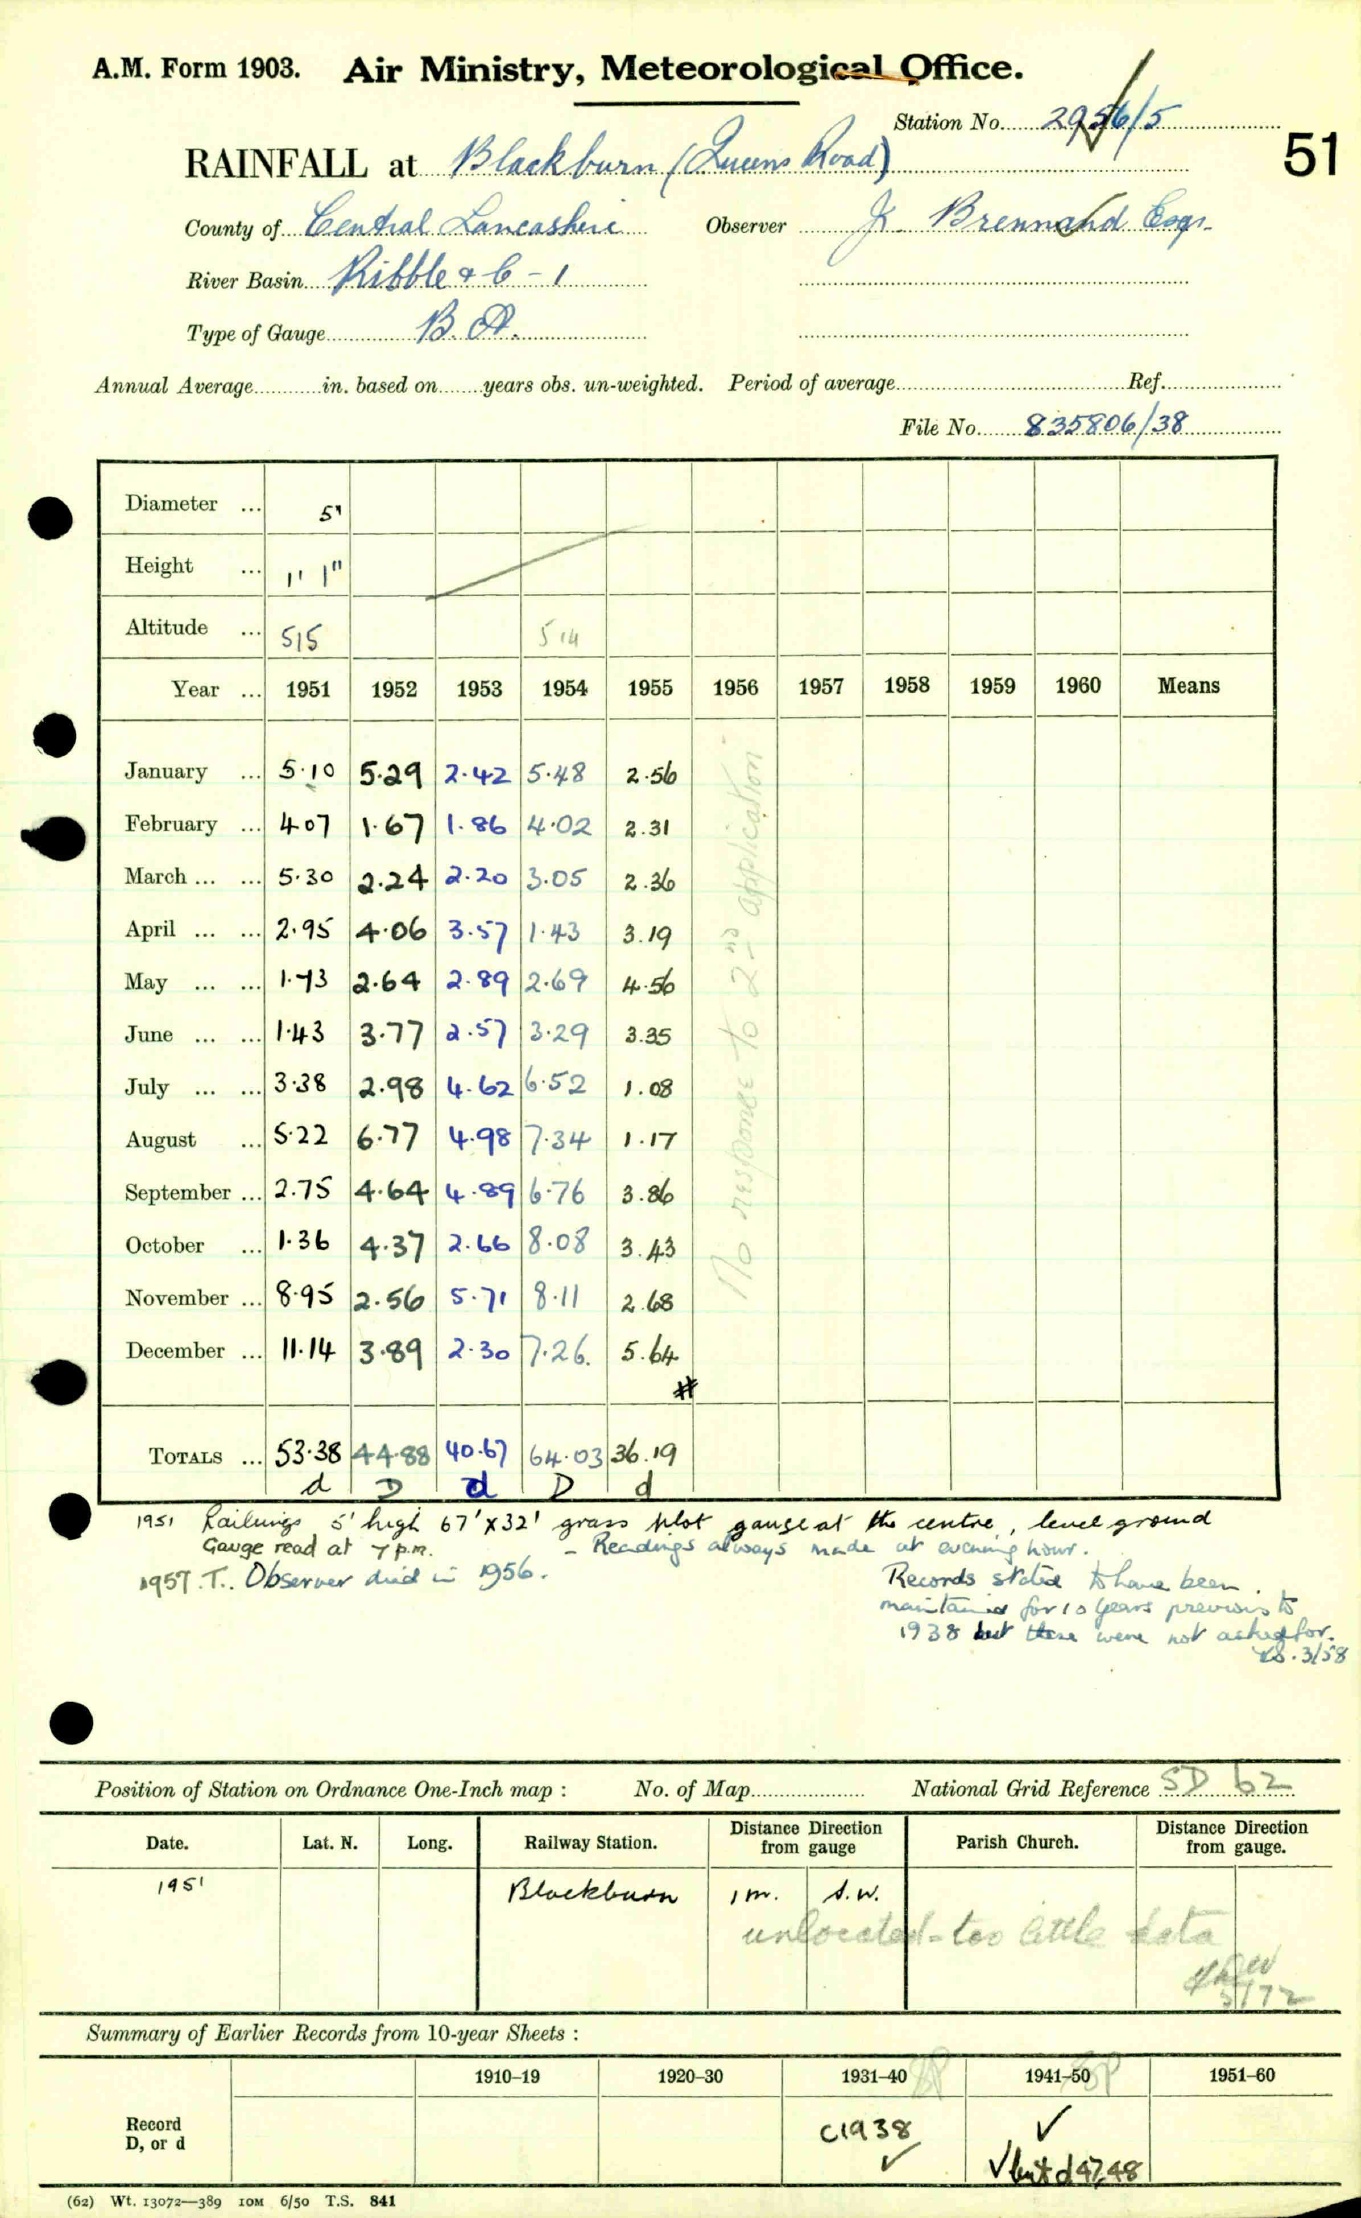 A.M. Form 1903. Air Ministry, Meteorological Office.
Station No. 2956/5
51
RAINFALL at Blackburn (Queens Road)
County of Central Lancashire Observer J. Brennand Esq.
River Basin Ribble & C - 1
Type of Gauge B.A.
Annual Average in. based on years obs. un-weighted. Period of average Ref.
File No. 835806/38
Diameter ... 5"
Height ... 1' 1"
Altitude ... 515 514
Year ... 1951 1952 1953 1954 1955 1956 1957 1958 1959 1960 Means
January ... 5.10 5.29 2.42 5.48 2.56
February ... 4.07 1.67 1.86 4.02 2.31
March ... ... 5.30 2.24 2.20 3.05 2.36
April ... ... 2.95 4.06 3.57 1.43 3.19
May ... ... 1.73 2.64 2.89 2.69 4.56
June ... ... 1.43 3.77 2.57 3.29 3.35
July ... ... 3.38 2.98 4.62 6.52 1.08
August ... 5.22 6.77 4.98 7.34 1.17
September ... 2.75 4.64 4.89 6.76 3.86
October ... 1.36 4.37 2.66 8.08 3.43
November ... 8.95 2.56 5.71 8.11 2.68
December ... 11.14 3.89 2.30 7.26. 5.64
#
No response to 2nd application
TOTALS ... 53.38 44.88 40.67 64.03 36.19
d D d D d
1951 Railings 5' high 67' x 32' grass plot gauge at the centre, level ground
Gauge read at 7 p.m. - Readings always made at evening hour.
1957. T. Observer died in 1956.
Records stated to have been
maintained for 10 years previous to
1938 but these were not asked for.
3/58
Position of Station on Ordnance One-Inch map : No. of Map National Grid Reference SD 62
Date. Lat. N. Long. Railway Station. Distance Direction from gauge Parish Church. Distance Direction from gauge.
1951 Blackburn 1 m. S.W.
unlocated - too little data
5/72
Summary of Earlier Records from 10-year Sheets :
1910–19 1920–30 1931–40 1941–50 1951–60
Record
D, or d
C1938 ✓
✓ ✓ but d 47,48
(62) Wt. 13072—389 10M 6/50 T.S. 841